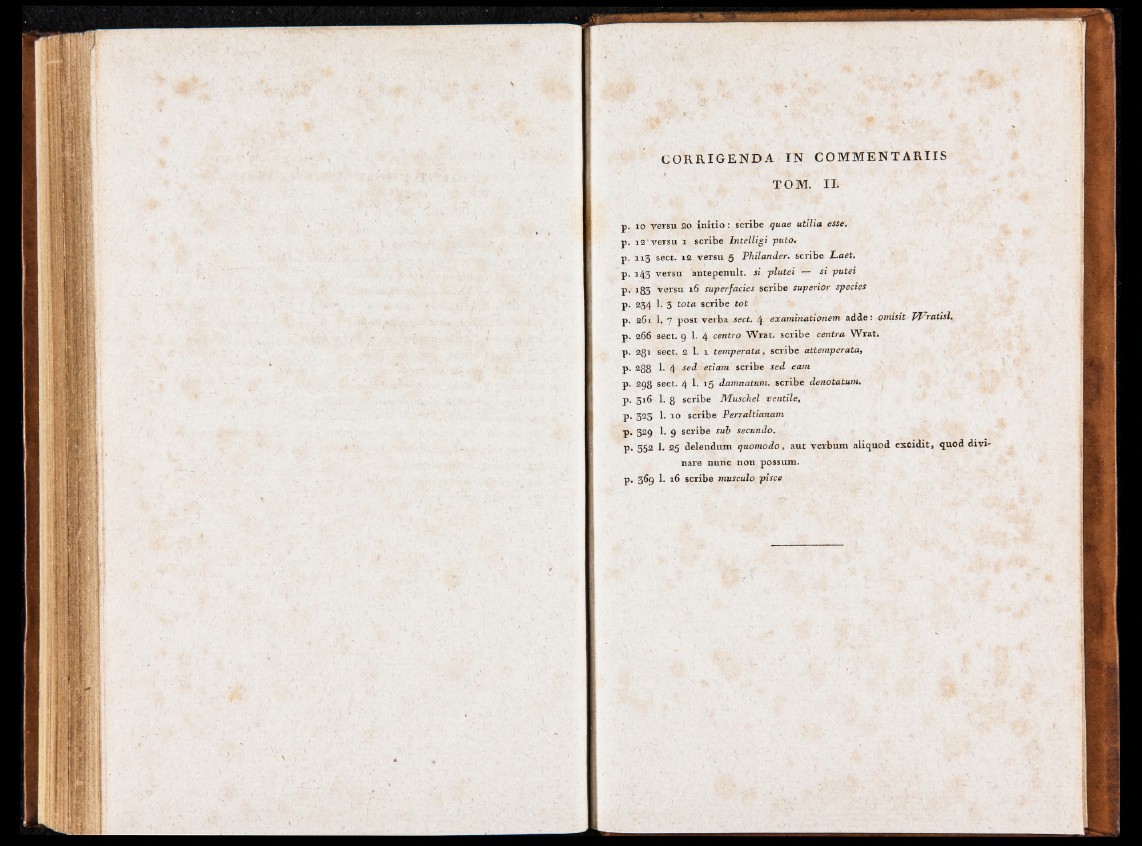 CORRIGENDA IN COMMENTARIIS
TOM. II.
p. 10 versu 20 initio : scribe quae utilia esse.
p. 12 versu 1 scribe Intelligi puto.
p. 113 sect. 12 versu 5 Philander. scribe Laet.
p. 143 versu antepenult. si plutei — si putei
p. 183 versu 16 superfacies scribe superior species
p. 234 l. 3 tota scribe tot
p. 261 l. 7 post verba sect. 4 examinationem adde : omisit Wratisl.
p. 266 sect. 9 l. 4 centro Wrat. scribe centra Wrat.
p. 281 sect. 2 l. 1 temperata, scribe attemperata,
p. 288 l. 4 sed etiam scribe sed eam
p. 298 sect. 4 l. 15 damnatum. scribe denotatum.
p. 316 l. 8 scribe Muschel ventile,
p. 323 l. 10 scribe Perraltianam
p. 329 l. 9 scribe sub secundo.
p. 352 l. 25 delendum quomodo, aut verbum aliquod excidit, quod divi-
nare nunc non possum.
p. 369 l. 16 scribe musculo pisce